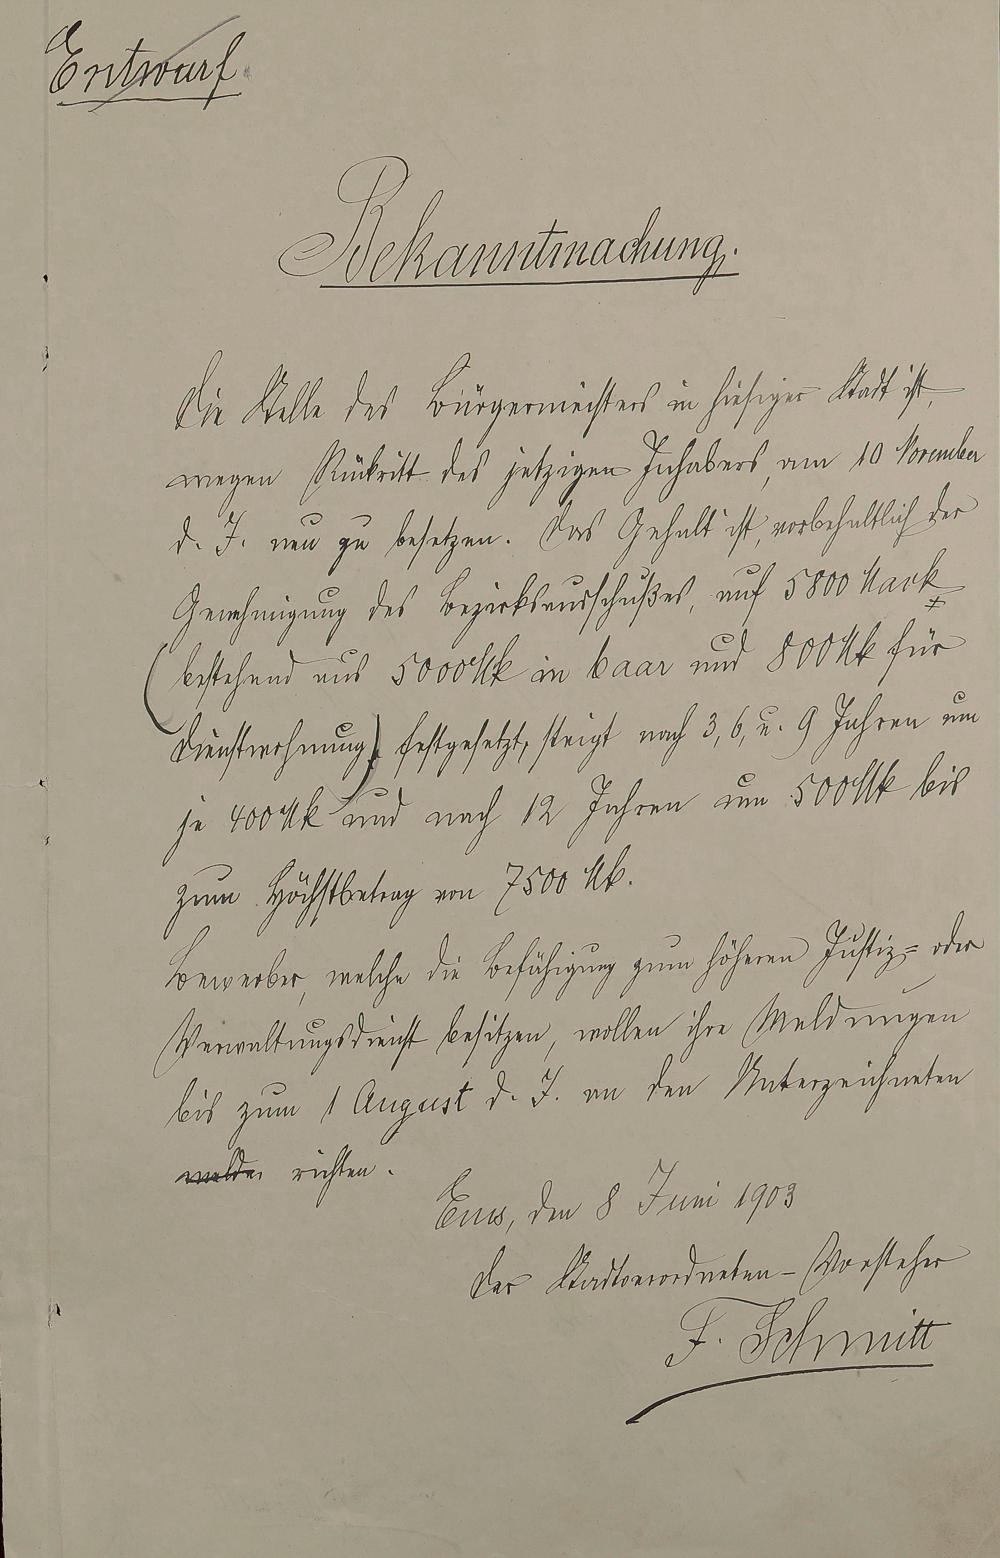 Entwurf.
Bekanntmachung.
Die Stelle des Bürgermeisters in hiesiger Stadt ist,
wegen Rückritt des jetzigen Inhabers, am 10 November
d. J. neu zu besetzen. Das Gehalt ist, vorbehaltlich der
Genehmigung des Bezirksausschußes, auf 5800 Mark
(bestehend aus 5000 Mk in baar und 800 Mk für
Dienstwohnung) festgesetzt, steigt nach 3, 6, u. 9 Jahren um
je 400 Mk und nach 12 Jahren um 500 Mk bis
zum Höchstbetrag von 7500 Mk.
Bewerber, welche die Befähigung zum höheren Justiz= oder
Verwaltungsdienst besitzen, wollen ihre Meldungen
bis zum 1 August d. J. an den Unterzeichneten
richten.
Ems, den 8 Juni 1903
Der Stadtverordneten-Vorsteher
F. Schmitt